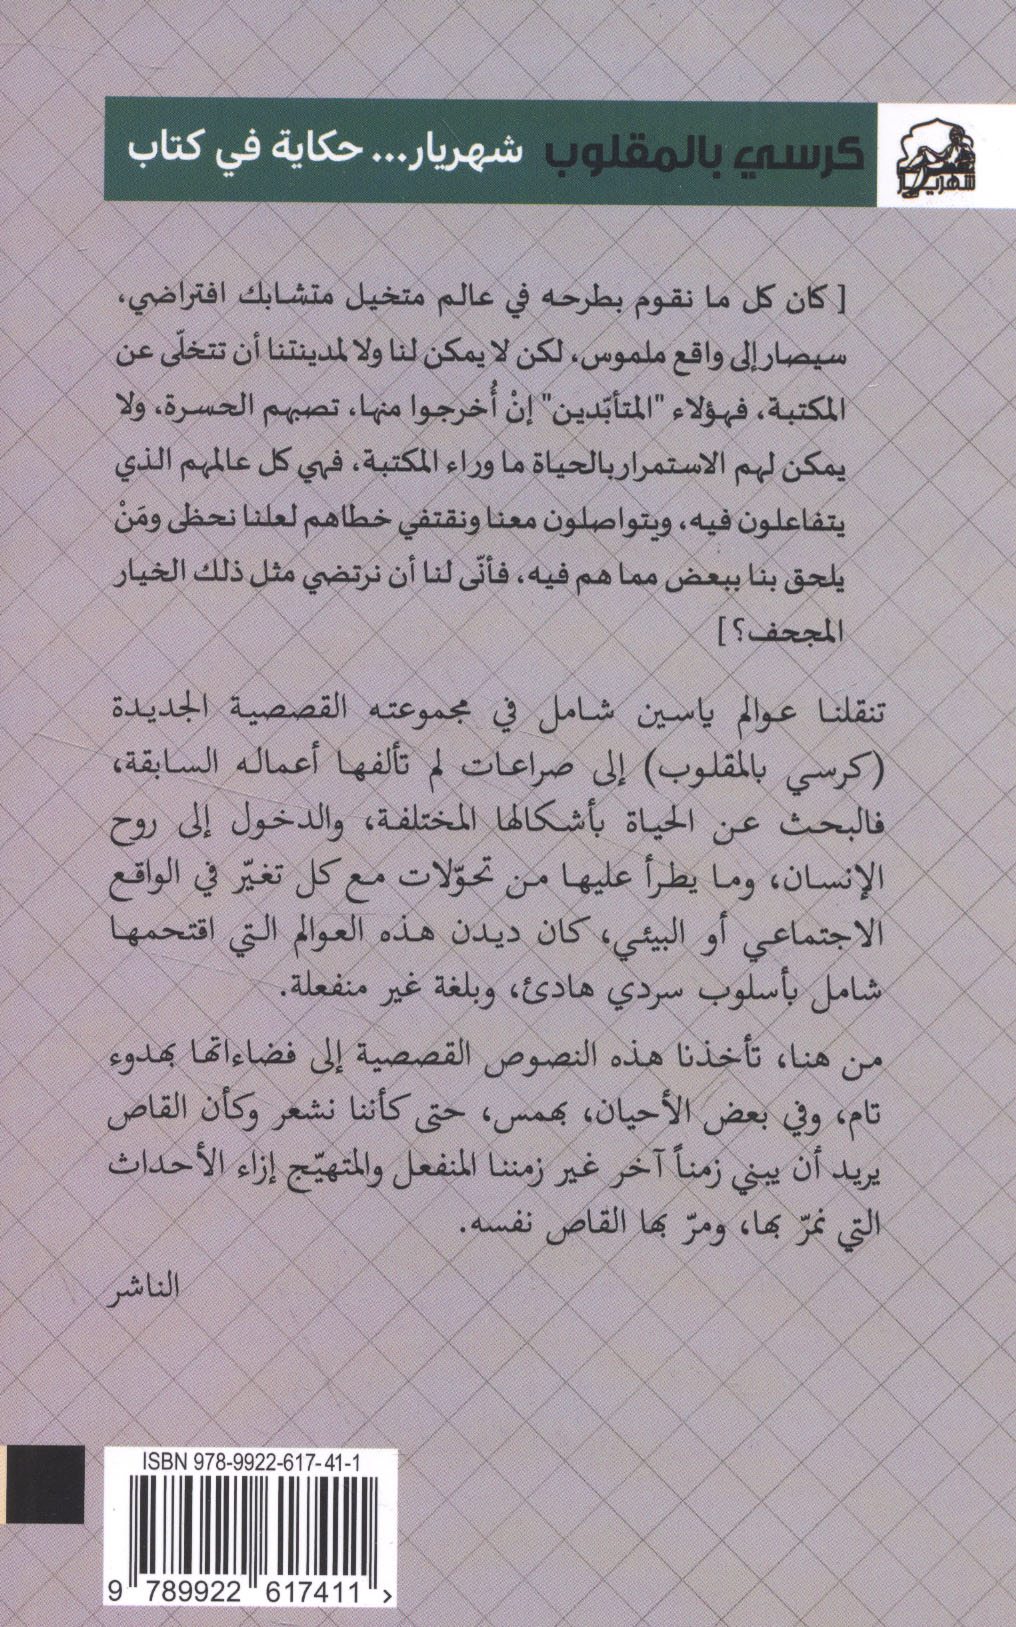 كرسي بالمقلوب شهريار... حكاية في كتاب
شهريار
[ كان كل ما نقوم بطرحه في عالم متخيل متشابك افتراضي،
سيصار إلى واقع ملموس، لكن لا يمكن لنا ولا لمدينتنا أن تتخلّى عن
المكتبة، فهؤلاء "المتأبّدين" إنْ أُخرجوا منها، تصبهم الحسرة، ولا
يمكن لهم الاستمرار بالحياة ما وراء المكتبة، فهي كل عالمهم الذي
يتفاعلون فيه، ويتواصلون معنا ونقتفي خطاهم لعلنا نحظى ومَنْ
يلحق بنا ببعض مما هم فيه، فأنّى لنا أن نرتضي مثل ذلك الخيار
المجحف؟ ]
تنقلنا عوالم ياسين شامل في مجموعته القصصية الجديدة
(كرسي بالمقلوب) إلى صراعات لم تألفها أعماله السابقة،
فالبحث عن الحياة بأشكالها المختلفة، والدخول إلى روح
الإنسان، وما يطرأ عليها من تحوّلات مع كل تغيّر في الواقع
الاجتماعي أو البيئي، كان ديدن هذه العوالم التي اقتحمها
شامل بأسلوب سردي هادئ، وبلغة غير منفعلة.
من هنا، تأخذنا هذه النصوص القصصية إلى فضاءاتها بهدوء
تام، وفي بعض الأحيان، بهمس، حتى كأننا نشعر وكأن القاص
يريد أن يبني زمناً آخر غير زمننا المنفعل والمتهيّج إزاء الأحداث
التي نمرّ بها، ومرّ بها القاص نفسه.
الناشر
ISBN 978-9922-617-41-1
9 789922 617411 >